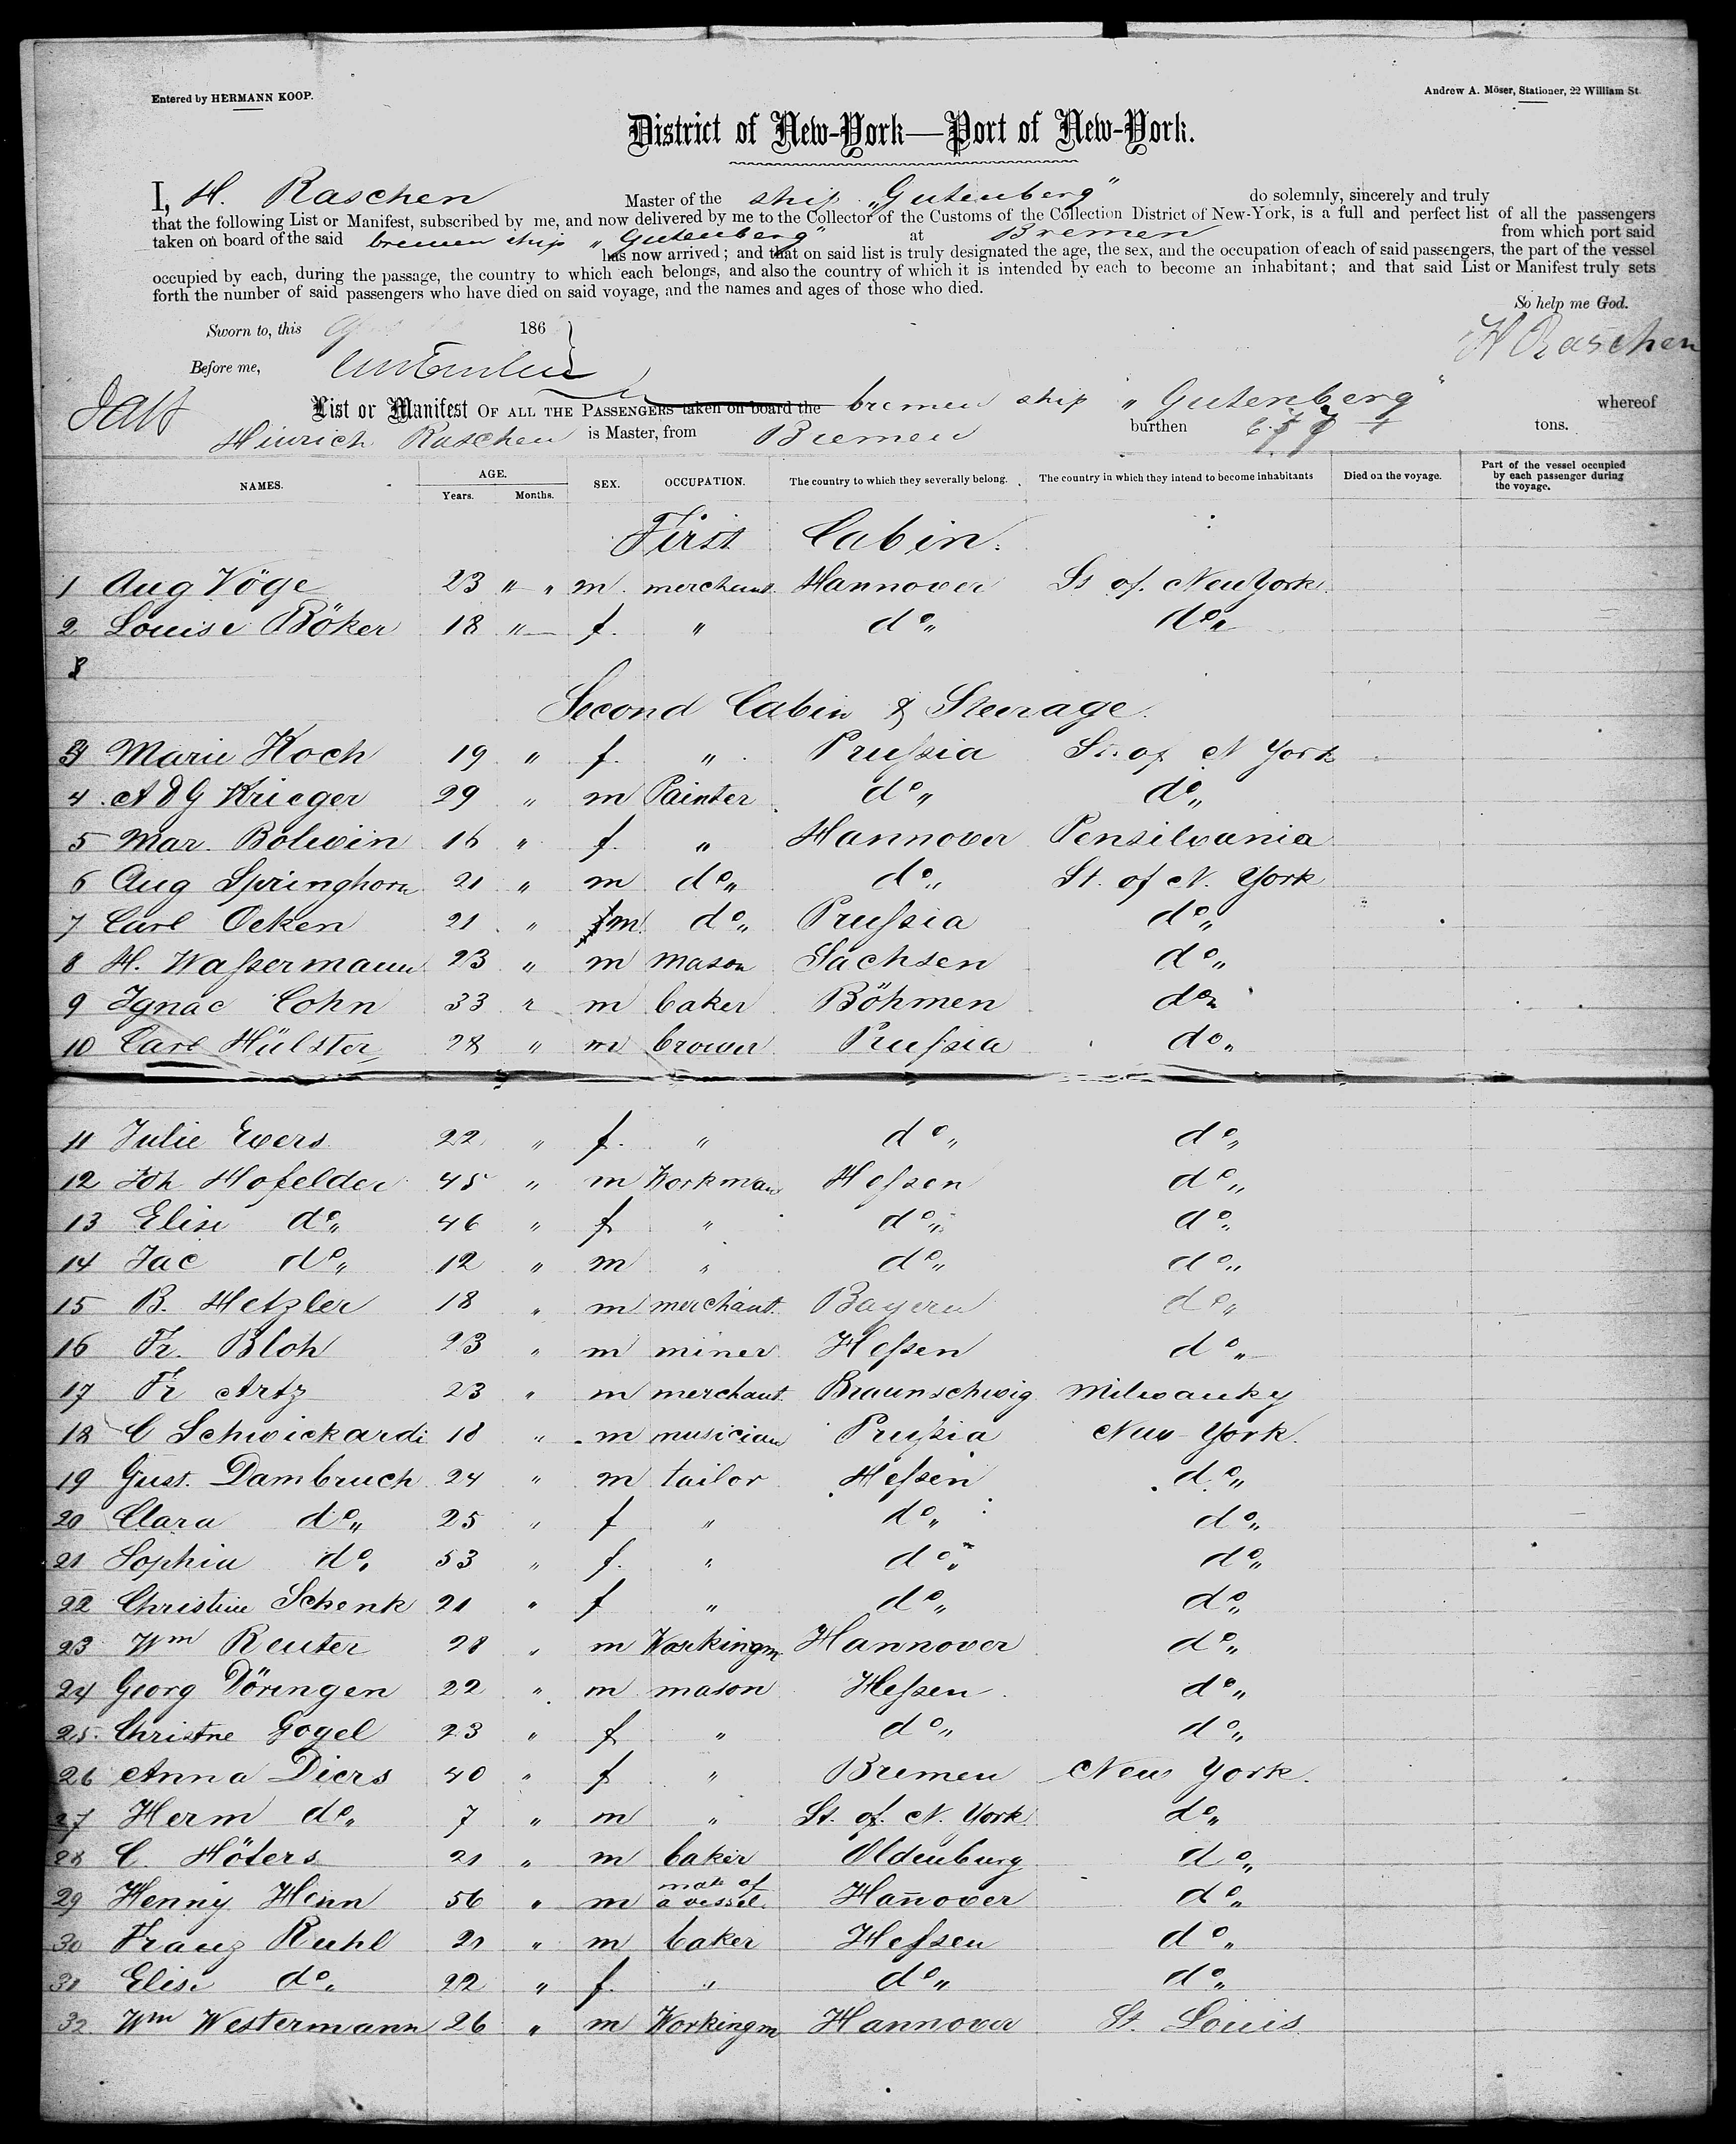 Entered by HERMANN KOOP.
Andrew A. Möser, Stationer, 22 William St
District of New-York—Port of New-York.
I, H. Raschen Master of the ship „Gutenberg" do solemnly, sincerely and truly
that the following List or Manifest, subscribed by me, and now delivered by me to the Collector of the Customs of the Collection District of New-York, is a full and perfect list of all the passengers
taken on board of the said bremen ship „Gutenberg" at Bremen from which port said
has now arrived; and that on said list is truly designated the age, the sex, and the occupation of each of said passengers, the part of the vessel
occupied by each, during the passage, the country to which each belongs, and also the country of which it is intended by each to become an inhabitant; and that said List or Manifest truly sets
forth the number of said passengers who have died on said voyage, and the names and ages of those who died.
So help me God.
Sworn to, this 186
H Raschen
Before me,
List or Manifest OF ALL THE PASSENGERS taken on board the bremen ship „Gutenberg" whereof
Hinrich Raschen is Master, from Bremen burthen tons.
NAMES. AGE. Years. Months. SEX. OCCUPATION. The country to which they severally belong. The country in which they intend to become inhabitants Died on the voyage. Part of the vessel occupied by each passenger during the voyage.
First Cabin.
1 Aug Vöge 23 " " m. merchant Hannover St of. New York.
2 Louise Böker 18 " f. " do" do"
3
Second Cabin & Steerage.
3 Marie Koch 19 " f. " Prußia St. of N York
4 A D G Krieger 29 " m Painter do" do"
5 Mar. Bolwin 16 " f. " Hannover Pensilvania
6 Aug Springhorn 21 " m do" do" St. of N. York
7 Carl Ocken 21 " m do" Prußia do"
8 H. Waßermann 23 " m mason Sachsen do"
9 Ignac Cohn 33 " m baker Böhmen do"
10 Carl Hülster 28 " m brower Prußia do"
11 Julie Evers 22 " f. " do" do"
12 Joh Hofelder 45 " m Workman Heßen do"
13 Elise do" 46 " f " do" do"
14 Jac do" 12 " m " do" do"
15 B. Hetzler 18 " m merchant. Bayern do"
16 Fr. Bloh 23 " m miner Heßen do"
17 Fr Artz 23 " m merchant Braunschwig Milwauky
18 C Schwickardi 18 " m musician Prußia New-York.
19 Gust. Dambruch 24 " m tailor Heßen do"
20 Clara do" 25 " f " do" do"
21 Sophia do" 53 " f. " do" do"
22 Christine Schenk 21 " f " do" do"
23 Wm Reuter 28 " m Workingm Hannover do"
24 Georg Döringen 22 " m mason Heßen do"
25. Christne Gogel 23 " f " do" do"
26 Anna Diers 40 " f " Bremen New York.
27 Herm do" 7 " m " St. of. N. York do"
28 C. Höters 21 " m baker Oldenburg do"
29 Henny Henn 56 " m mate of a vessel. Han̄over do"
30 Franz Ruhl 21 " m baker Heßen do"
31 Elise do" 22 " f. " do" do"
32. Wm Westermann 26 " m Workingm Hannover St. Louis